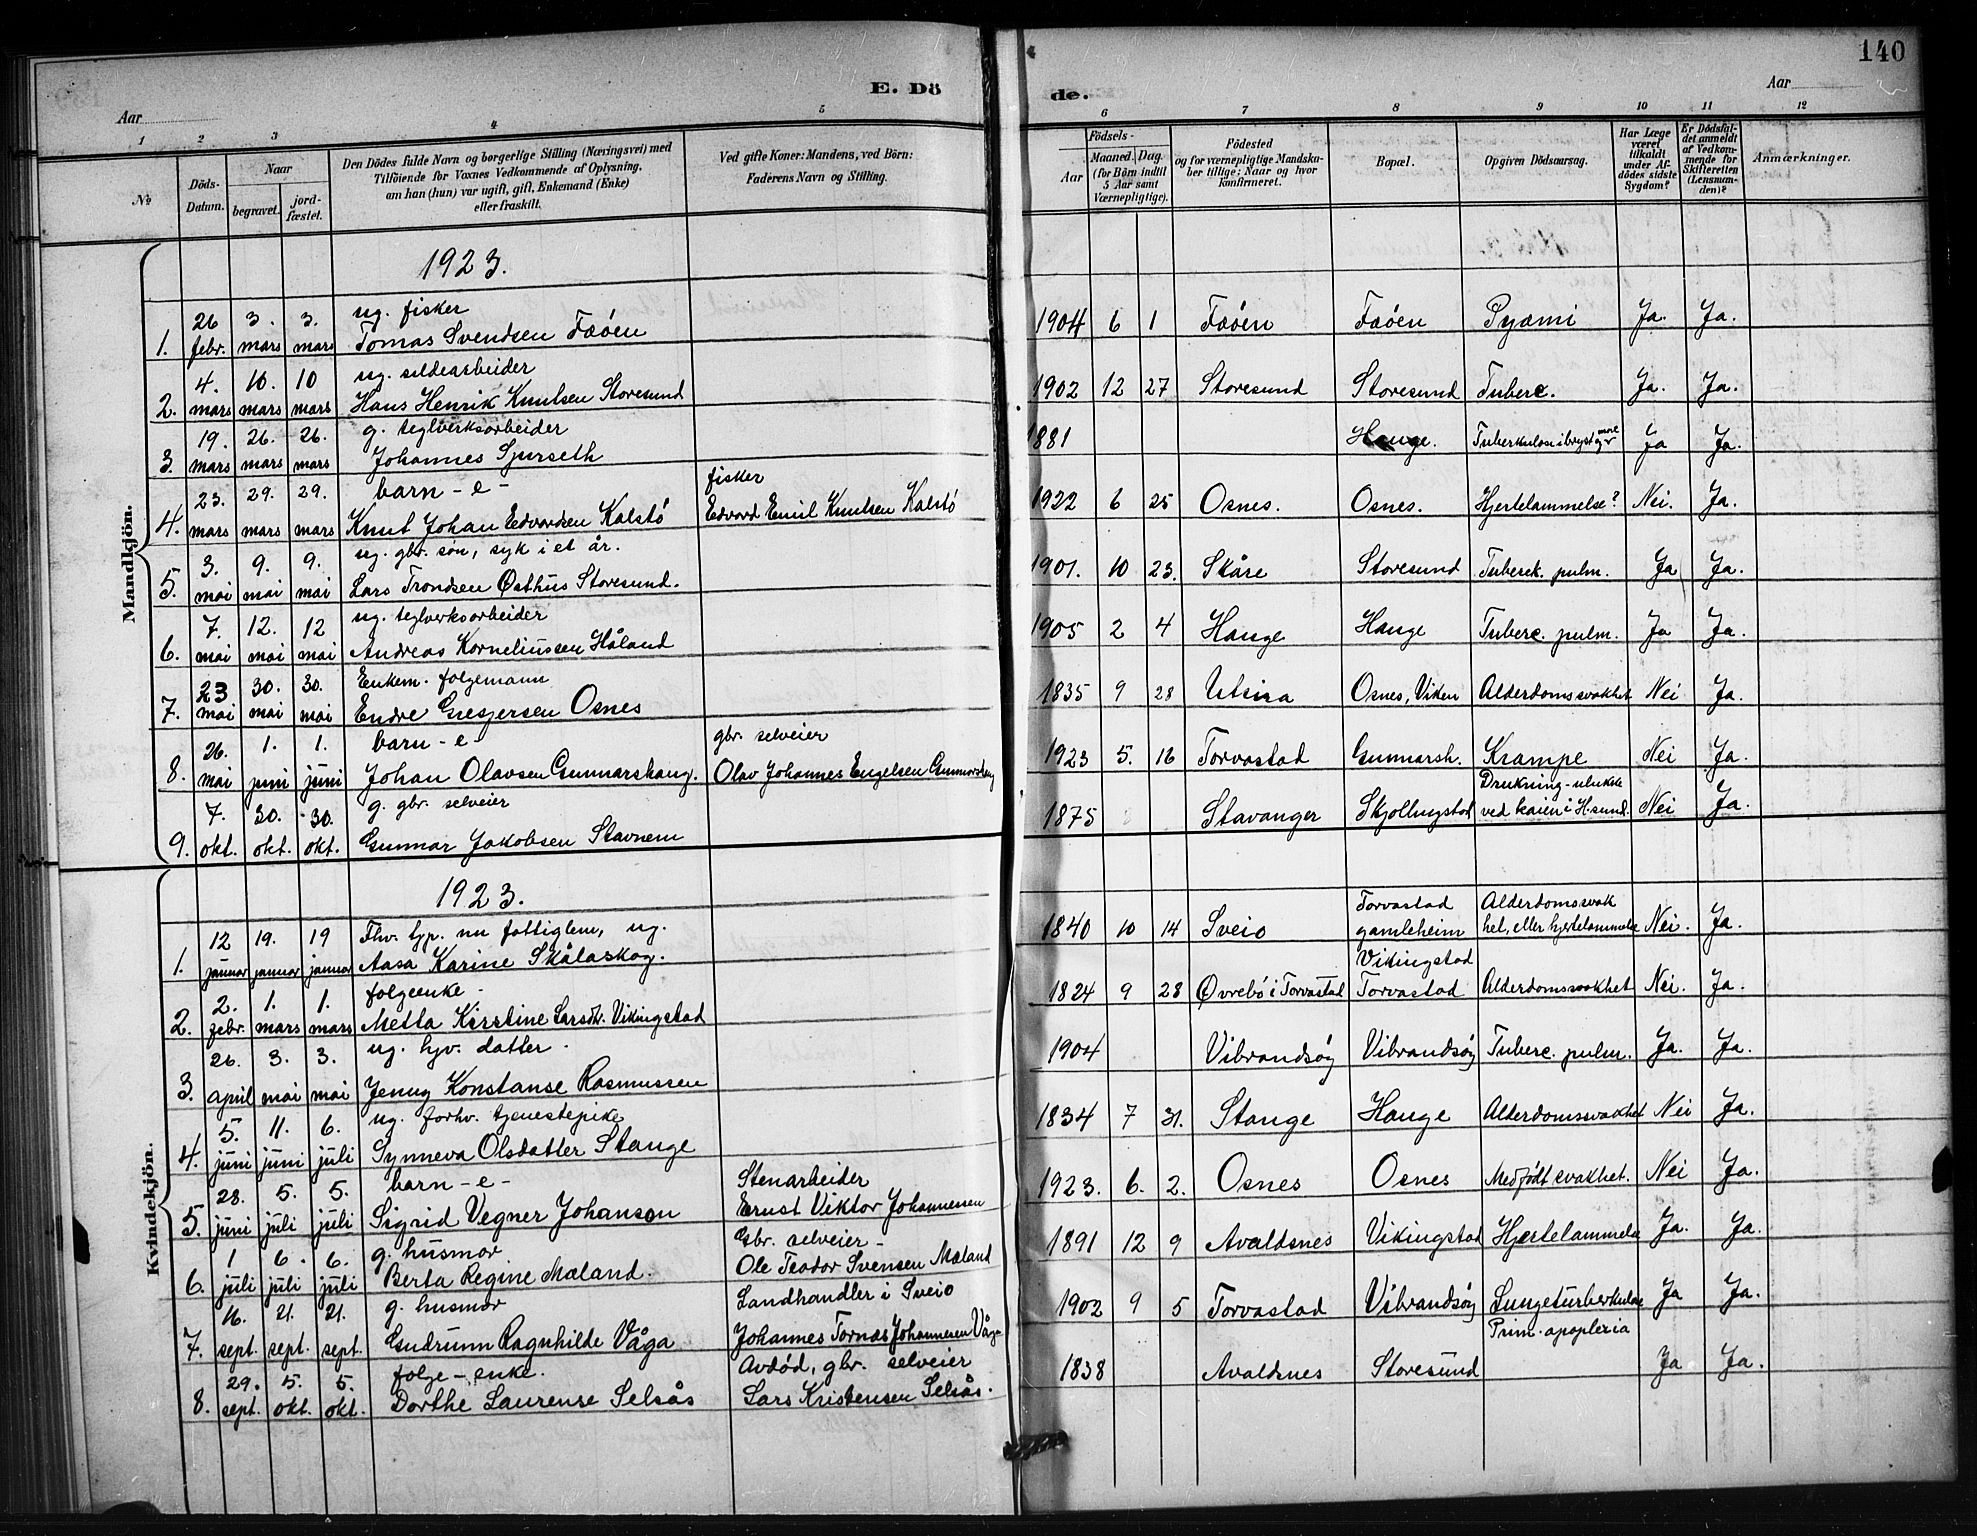 140
E. Dö de.
Aar
Aar
1 2 3 4 5 6 7 8 9 10 11 12
№
Döds-Datum.
Naar
begravet.
jord-fæstet.
Den Dödes fulde Navn og borgerlige Stilling (Næringsvei) med
Tilföiende for Voxnes Vedkommende af Oplysning,
om han (hun) var ugift, gift, Enkemand (Enke)
eller fraskilt.
Ved gifte Koner: Mandens, ved Börn:
Faderens Navn og Stilling.
Födsels-
Aar
Maaned. Dag.
(for Börn indtil
5 Aar samt
Værnepligtige).
Födested
og for værnepligtige Mandska-
ber tillige: Naar og hvor
konfirmeret.
Bopæl.
Opgiven Dödsaarsag.
Har Læge
været
tilkaldt
under Af-
dödes sidste
Sygdom?
Er Dödsfal-
det anmeldt
af Vedkom-
mende for
Skifteretten
(Lensman-
den)?
Anmærkninger.
Mandkjön.
1923.
ug. fisker
1. 26 febr. 3. mars 3. mars Tomas Svendsen Fæøen 1904 6 1 Fæøen Fæøen Pyæmi Ja. Ja.
ug. sildearbeider
2. 4. mars 10. mars 10 mars Hans Henrik Knutsen Storesund 1902 12 27 Storesund Storesund Tuberc. Ja. Ja.
g. teglverksarbeider
3. 19. mars 26. mars 26. mars Johannes Spurseth 1881 Hauge. Tuberkulose i bryst og Ja Ja.
barn - e - fisker
4. 23. mars 29. mars 29. mars Knut Johan Edvardsen Kalstø Edvard Emil Knutsen Kalstø 1922 6 25 Osnes. Osnes. Hjertelammelse? Nei. Ja.
ug. gbr. søn, syk i et år.
5. 3. mai 9. mai 9. mai Lars Trondsen Østhus Storesund. 1901. 10 23. Skåre Storesund Tuberk. pulm. Ja Ja.
ug. teglverksarbeider
6. 7. mai 12. mai 12 mai Andreas Korneliussen Håland 1905 2 4 Hauge Hauge Tuberc. pulm. Ja Ja.
Enkem. folgemann
7. 23 mai 30. mai 30. mai Endre Gregersen Osnes 1835 9 28 Utsira Osnes, Viken Alderdomssvakhet Nei Ja.
barn - e - gbr. selveier
8. 26. mai 1. juni 1. juni Johan Olavsen Gunnarshaug. Olav Johannes Engelsen Gunnarshaug 1923 5. 16 Torvastad Gunnarsh. Krampe Nei Ja.
g. gbr. selveier Drukning-ulukke
9. 7. okt. 30. okt. 30. okt. Gunnar Jakobsen Stavnem 1875 Stavanger Skjollingstad ved kaien i H.sund. Nei Ja.
Kvindekjön.
1923.
Fhv. tyj. nu fattiglem, ug. Torvastad Alderdomssvak
1. 12 januar 19. januar 19 januar Aasa Karine Skålaskog. 1840 10 14 Sveio gamleheim het, eller hjertelammelse Nei. Ja.
folgeenke - Vikingstad
2. 2. febr. 1. mars 1. mars Metta Kirstine Larsdtr. Vikingstad 1824 9 28 Øvrebø i Torvastad Torvastad Alderdomssvakhet Nei. Ja.
ug. hjv. datter -
3. 26. april 3. mai 3. mai Jenny Konstanse Rasmussen 1904 Vibrandsøy Vibrandsøy Tuberc. pulm. Ja. Ja.
ug. forhv. tjenestepike
4. 5. juni 11. juni 6. juli Synneva Olsdatter Stange 1834 7 31. Stange Hauge Alderdomssvakhet Nei Ja.
barn - e - Stenarbeider
5. 28. juni 5. juli 5. juli Sigrid Vegner Johanson Ernst Viktor Johannesen 1923. 6. 2. Osnes Osnes Medfødt svakhet. Nei Ja.
g. husmor Gbr. selveier -
6. 1 juli 6. juli 6. juli Berta Regine Mæland. Ole Teodor Svensen Mæland 1891 12 9 Avaldsnes Vikingstad Hjertelammelse Ja. Ja.
g. husmor Landhandler i Sveio
7. 16. sept. 21. sept. 21. sept. Gudrunn Ragnhilde Våga Johannes Tornas Johannesen Våga 1902 9 5 Torvastad Vibrandsøy Lungeturberkulose Ja Ja.
folge - enke. Avdød, gbr. selveier Prim. apoplexia
8. 29. sept. 5. okt. 5. okt. Dorthe Laurense Selsås Lars Kristensen Selsås. 1838 Avaldsnes Storesund Ja Ja.